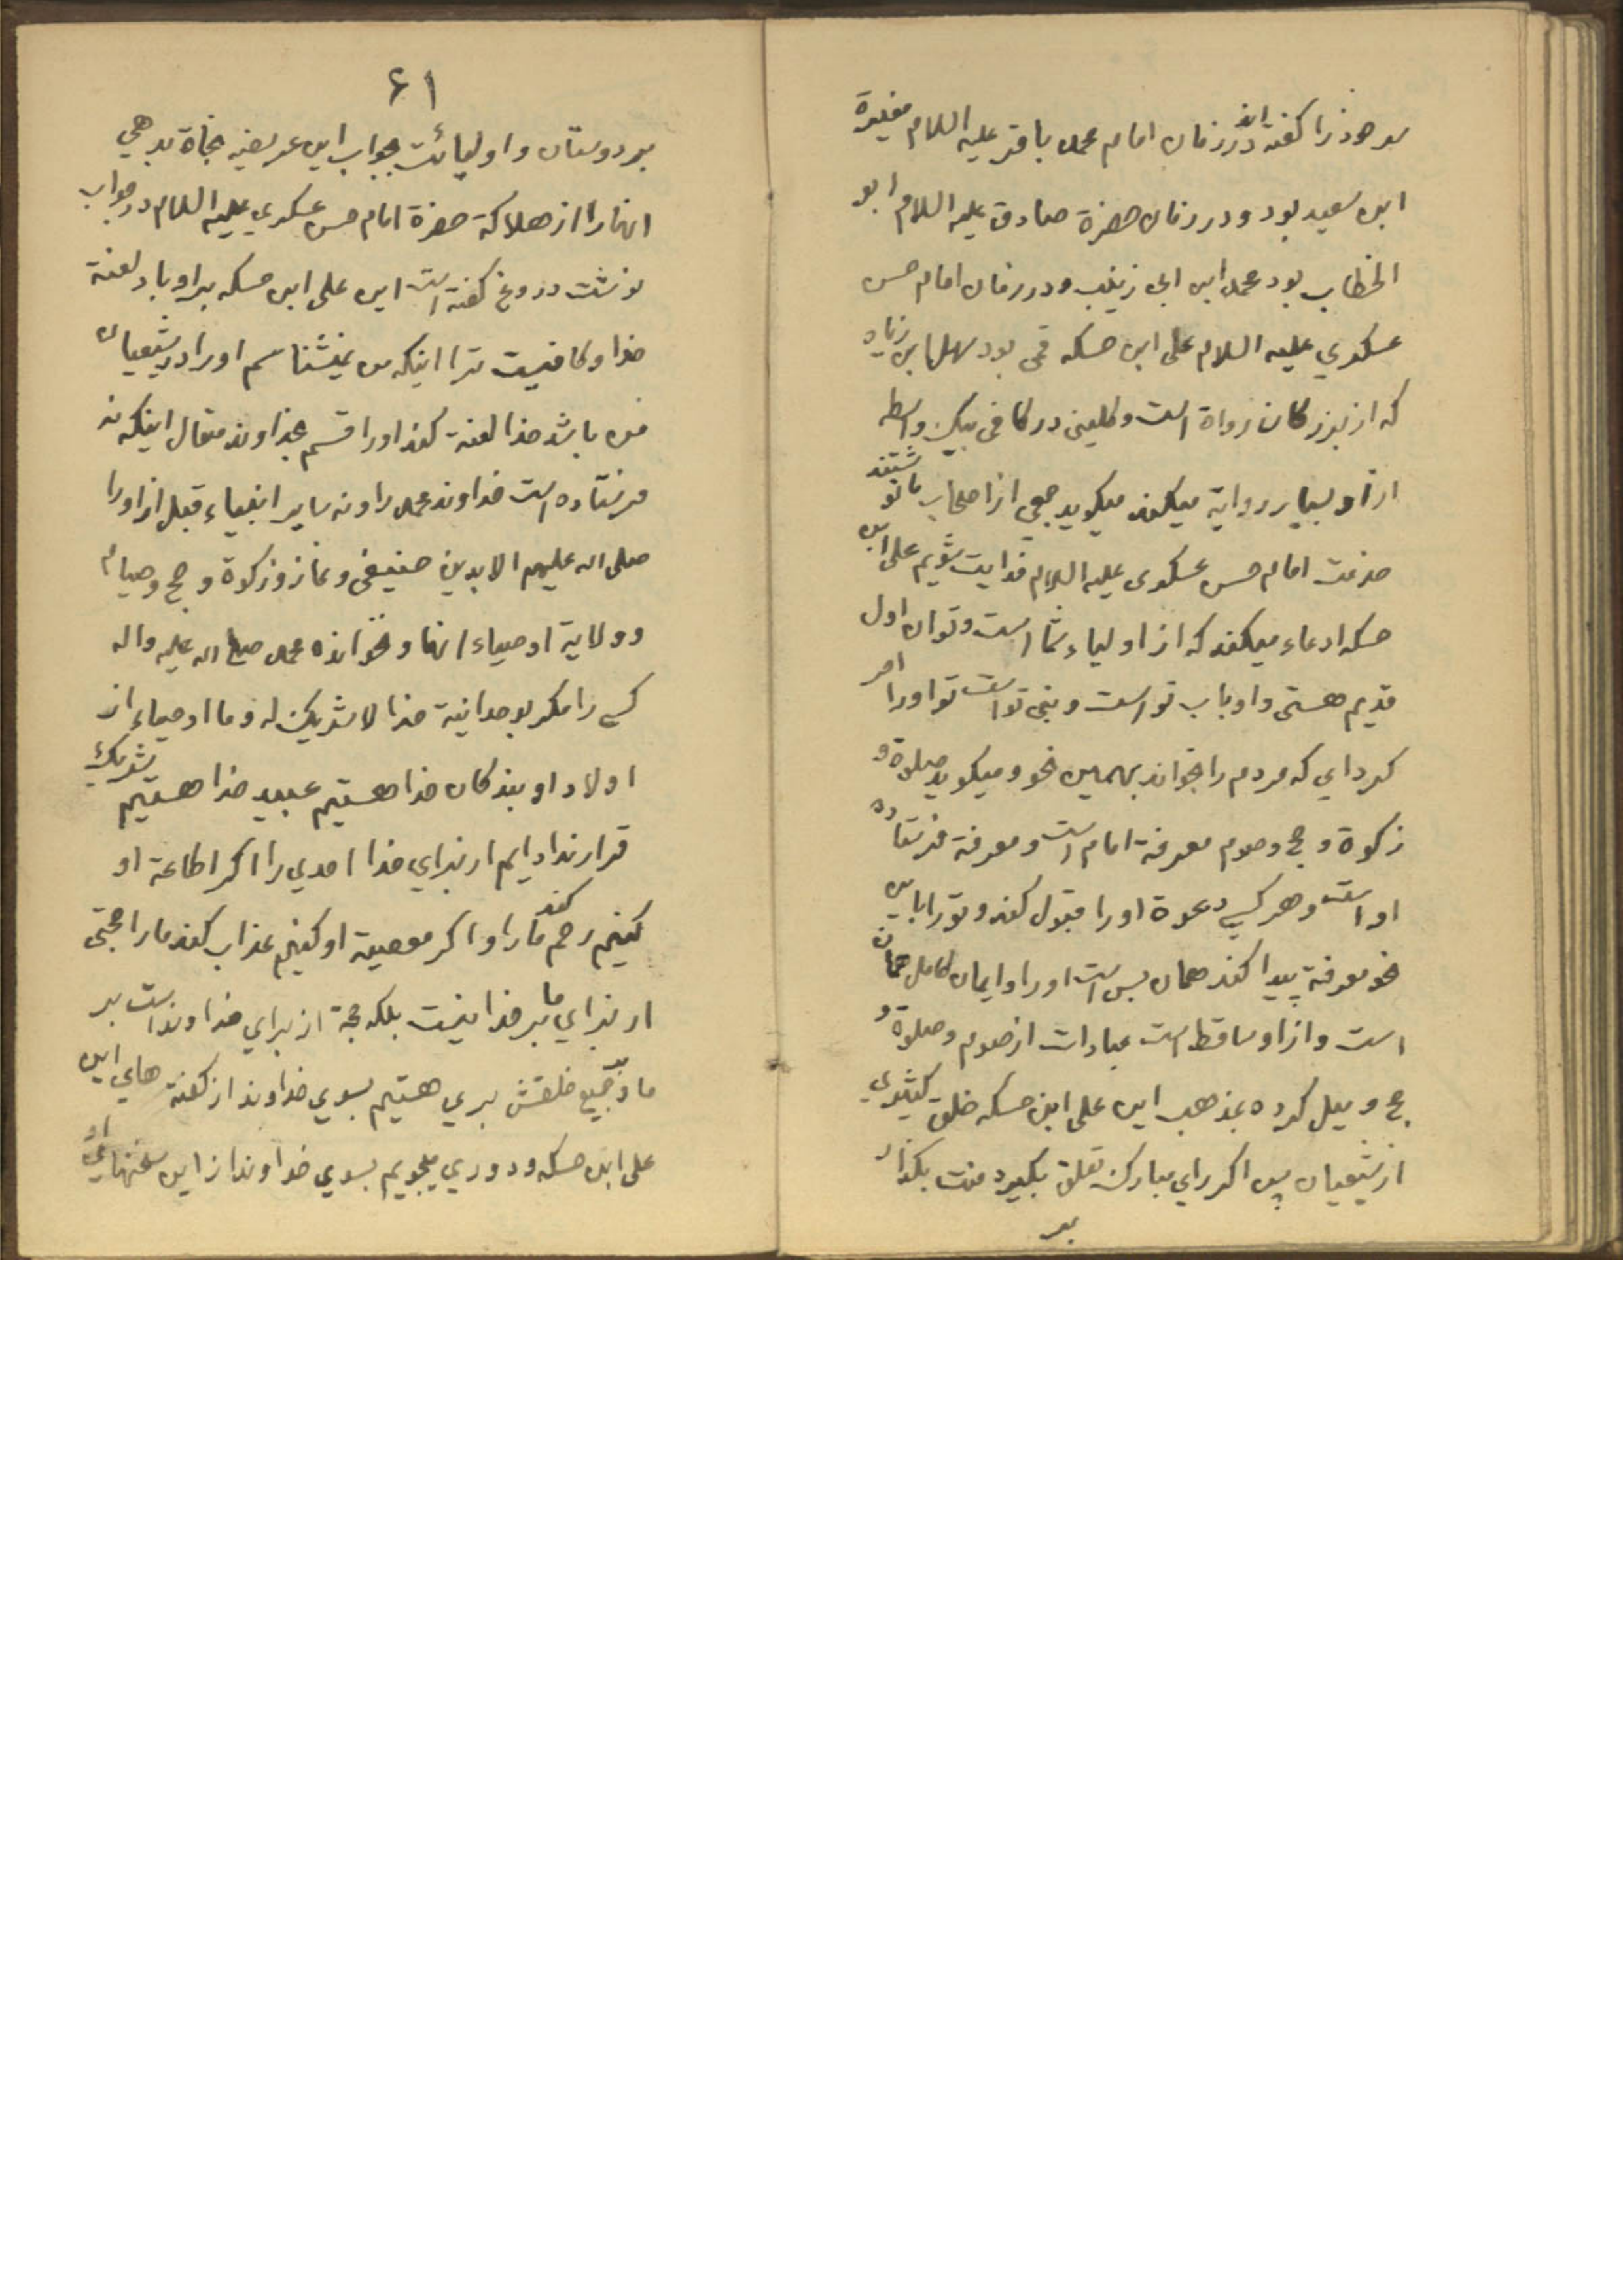 سر خود را گفته اند در زمان امام محمد باقر علیه السلام مغیرة
ابن سعید بود و در زمان حضرة صادق علیه السلام ابو
الخطاب بود محمد ابن ابی زینب و در زمان امام حسن
عسکري علیه السلام علی ابن حسکه قمی بود سهل ابن زیاد
که از بزرکان رواة است و کلینی در کافی بیک واسطه
از او بسیار روایة میکند میکوید جمعی از اصحاب ما نوشتند
خدمت امام حسن عسکری علیه السلام فدایت شویم علی ابن
حسکه ادعاء میکند که از اولیاء شما است و توان اول
قدیم هستی و او باب تو است و نبی تو است تو او را امر
کرداي که مردم را بخواند بهمین نحو و میکوید صلوة و
زکوة و حج و صوم معرفة امام است و معرفة فرستاده
او است و هر کسی دعوة او را قبول کند و تو را باین
نحو معرفة پیدا کند همان بس است او را و ایمان کامل همان
است و از او ساقط است عبادات از صوم و صلوة و
حج و میل کرده بمذهب این علی ابن حسکه خلق کثیري
از شیعیان پس اکر راي مبارک تعلق بکیرد منت بکذار
بر
۶۱
بر دوستان و اولیائت بجواب این عریضه نجاة بدهي
انها را از هلاکة حضرة امام حسن عسکري علیه السلام در جواب
نوشت دروغ کفته است این علی ابن حسکه بر او باد لعنة
خدا و کافیست ترا اینکه من نمیشناسم او را در شیعیان
من باشد خدا لعنة کند او را قسم بخداوند متعال اینکه نه
فرستاده است خداوند محمد را و نه سایر انبیاء قبل از او را
صلی الله علیهم الا بدین حنیفی و نماز و زکوة و حج و صیام
و ولایة اوصیاء انها و نخوانده محمد صلی الله علیه واله
کسی را مکر بوحدانیة خدا لا شریک له و ما اوصیاء از
اولاد او بندکان خدا هستیم عبید خدا هستیم شریک
قرار نداد ایم از براي خدا احدي را اکر اطاعة او
کنیم رحم کند مارا و اکر معصیة او کنیم عذاب کند مارا حجتی
از براي ما بر خدا نیست بلکه حجة از براي خداوند است بر
ما و بر جمیع خلقش بري هستیم بسوي خداوند از کفته هاي این
علی ابن حسکه و دوري میجویم بسوي خداوند از این سخنهاي او